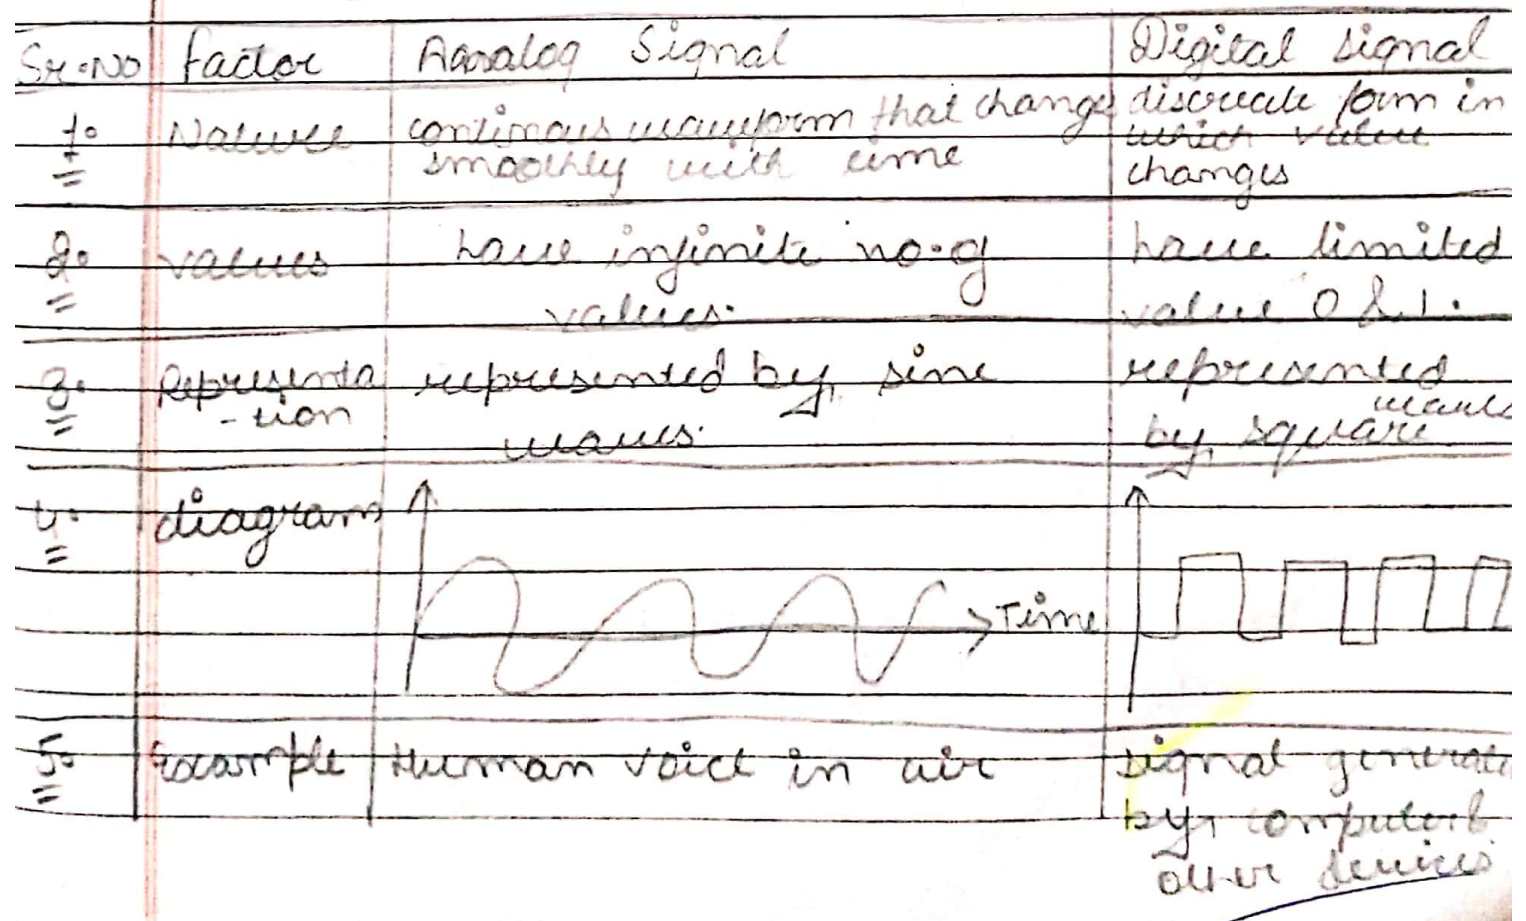 Sr.No factor Analog Signal Digital signal
1. Nature continous waveform that change discreate form in
smoothly with time which value
changes
2. values have infinite no. of have limited
values. value 0 & 1.
3. Representa represented by sine represented
-tion waves. by square waves
4. diagram
Time
5. Example Human voice in air signal generate
by computer &
other devices